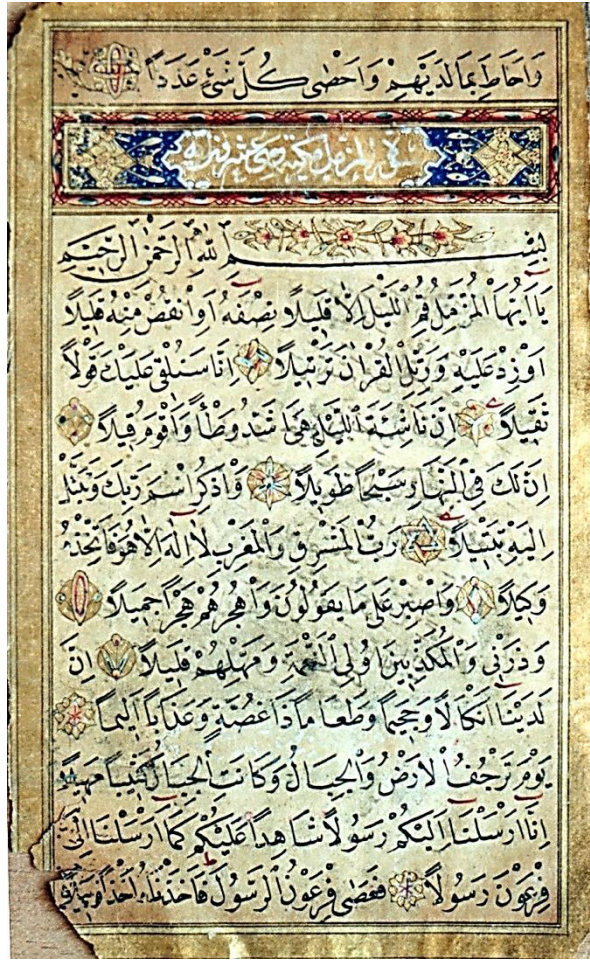 وَاَحَاطَ بِمَا لَدَيْهِمْ وَاَحْصٰى كُلَّ شَيْءٍ عَدَدًا
سورة المزمل مكية وهي عشرون اية
بِسْمِ اللّٰهِ الرَّحْمٰنِ الرَّحِيمِ
يَا اَيُّهَا الْمُزَّمِّلُ قُمِ الَّيْلَ اِلَّا قَلِيلًا نِصْفَهُ اَوِ انْقُصْ مِنْهُ قَلِيلًا
اَوْ زِدْ عَلَيْهِ وَرَتِّلِ الْقُرْاٰنَ تَرْتِيلًا اِنَّا سَنُلْقِي عَلَيْكَ قَوْلًا
ثَقِيلًا اِنَّ نَاشِئَةَ الَّيْلِ هِيَ اَشَدُّ وَطْأً وَاَقْوَمُ قِيلًا
اِنَّ لَكَ فِي النَّهَارِ سَبْحًا طَوِيلًا وَاذْكُرِ اسْمَ رَبِّكَ وَتَبَتَّلْ
اِلَيْهِ تَبْتِيلًا رَبُّ الْمَشْرِقِ وَالْمَغْرِبِ لَا اِلٰهَ اِلَّا هُوَ فَاتَّخِذْهُ
وَكِيلًا وَاصْبِرْ عَلٰى مَا يَقُولُونَ وَاهْجُرْهُمْ هَجْرًا جَمِيلًا
وَذَرْنِي وَالْمُكَذِّبِينَ اُولِي النَّعْمَةِ وَمَهِّلْهُمْ قَلِيلًا اِنَّ
لَدَيْنَا اَنْكَالًا وَجَحِيمًا وَطَعَامًا ذَا غُصَّةٍ وَعَذَابًا اَلِيمًا
يَوْمَ تَرْجُفُ الْاَرْضُ وَالْجِبَالُ وَكَانَتِ الْجِبَالُ كَثِيبًا مَهِيلًا
اِنَّا اَرْسَلْنَا اِلَيْكُمْ رَسُولًا شَاهِدًا عَلَيْكُمْ كَمَا اَرْسَلْنَا اِلٰى
فِرْعَوْنَ رَسُولًا فَعَصٰى فِرْعَوْنُ الرَّسُولَ فَاَخَذْنَاهُ اَخْذًا وَبِيلًا